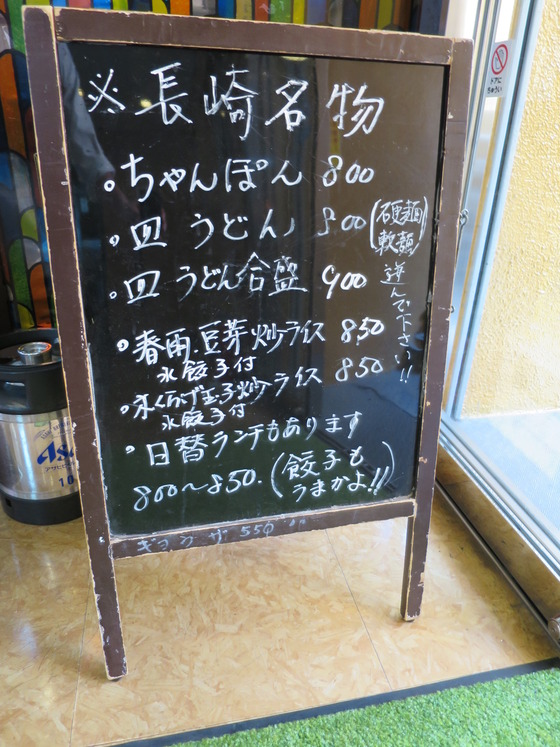 ※長崎名物
・ちゃんぽん 800
・皿 うどん 800 (硬麺 軟麺) 選んで下さい!!
・皿 うどん合盛 900
・春雨.豆芽炒ライス 850
水餃子付
・木くらげ玉子炒ライス 850
水餃子付
・日替ランチもあります
800～850. (餃子も
うまかよ!!)
ギョウザ 550
ドアに
ちゅうい
Asa
アサヒ
10